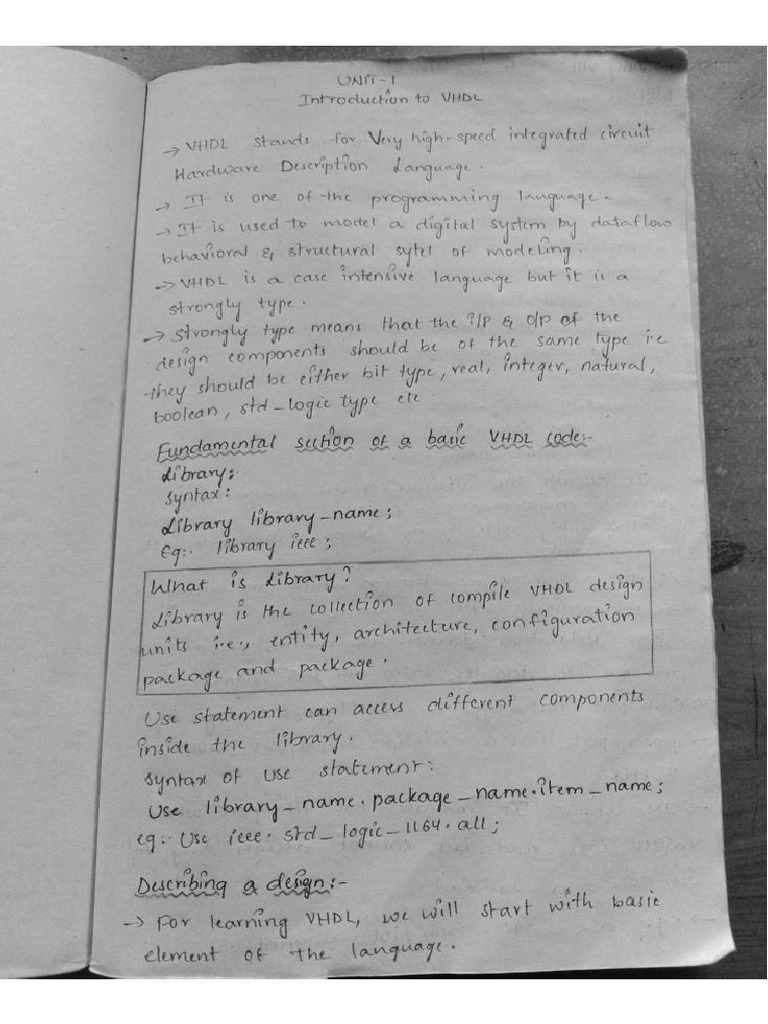 UNIT-1
Introduction to VHDL
→ VHDL stands for Very high-speed integrated circuit
Hardware Description Language.
→ It is one of the programming language.
→ It is used to model a digital system by dataflow
behavioral & structural sytel of modeling.
→ VHDL is a case intensive language but it is a
strongly type.
→ Strongly type means that the i/p & o/p of the
design components should be of the same type i.e
they should be either bit type, real, integer, natural,
boolean, std-logic type etc.
Fundamental section of a basic VHDL code:-
Library:
Syntax:
Library library_name;
Eg:- library ieee;
What is Library?
Library is the collection of compile VHDL design
units i.e., entity, architecture, configuration
package and package.
Use statement can access different components
inside the library.
Syntax of use statement:
Use library_name.package_name.item_name;
eg:- Use ieee.std_logic_1164.all;
Describing a design:-
→ For learning VHDL, we will start with basic
element of the language.